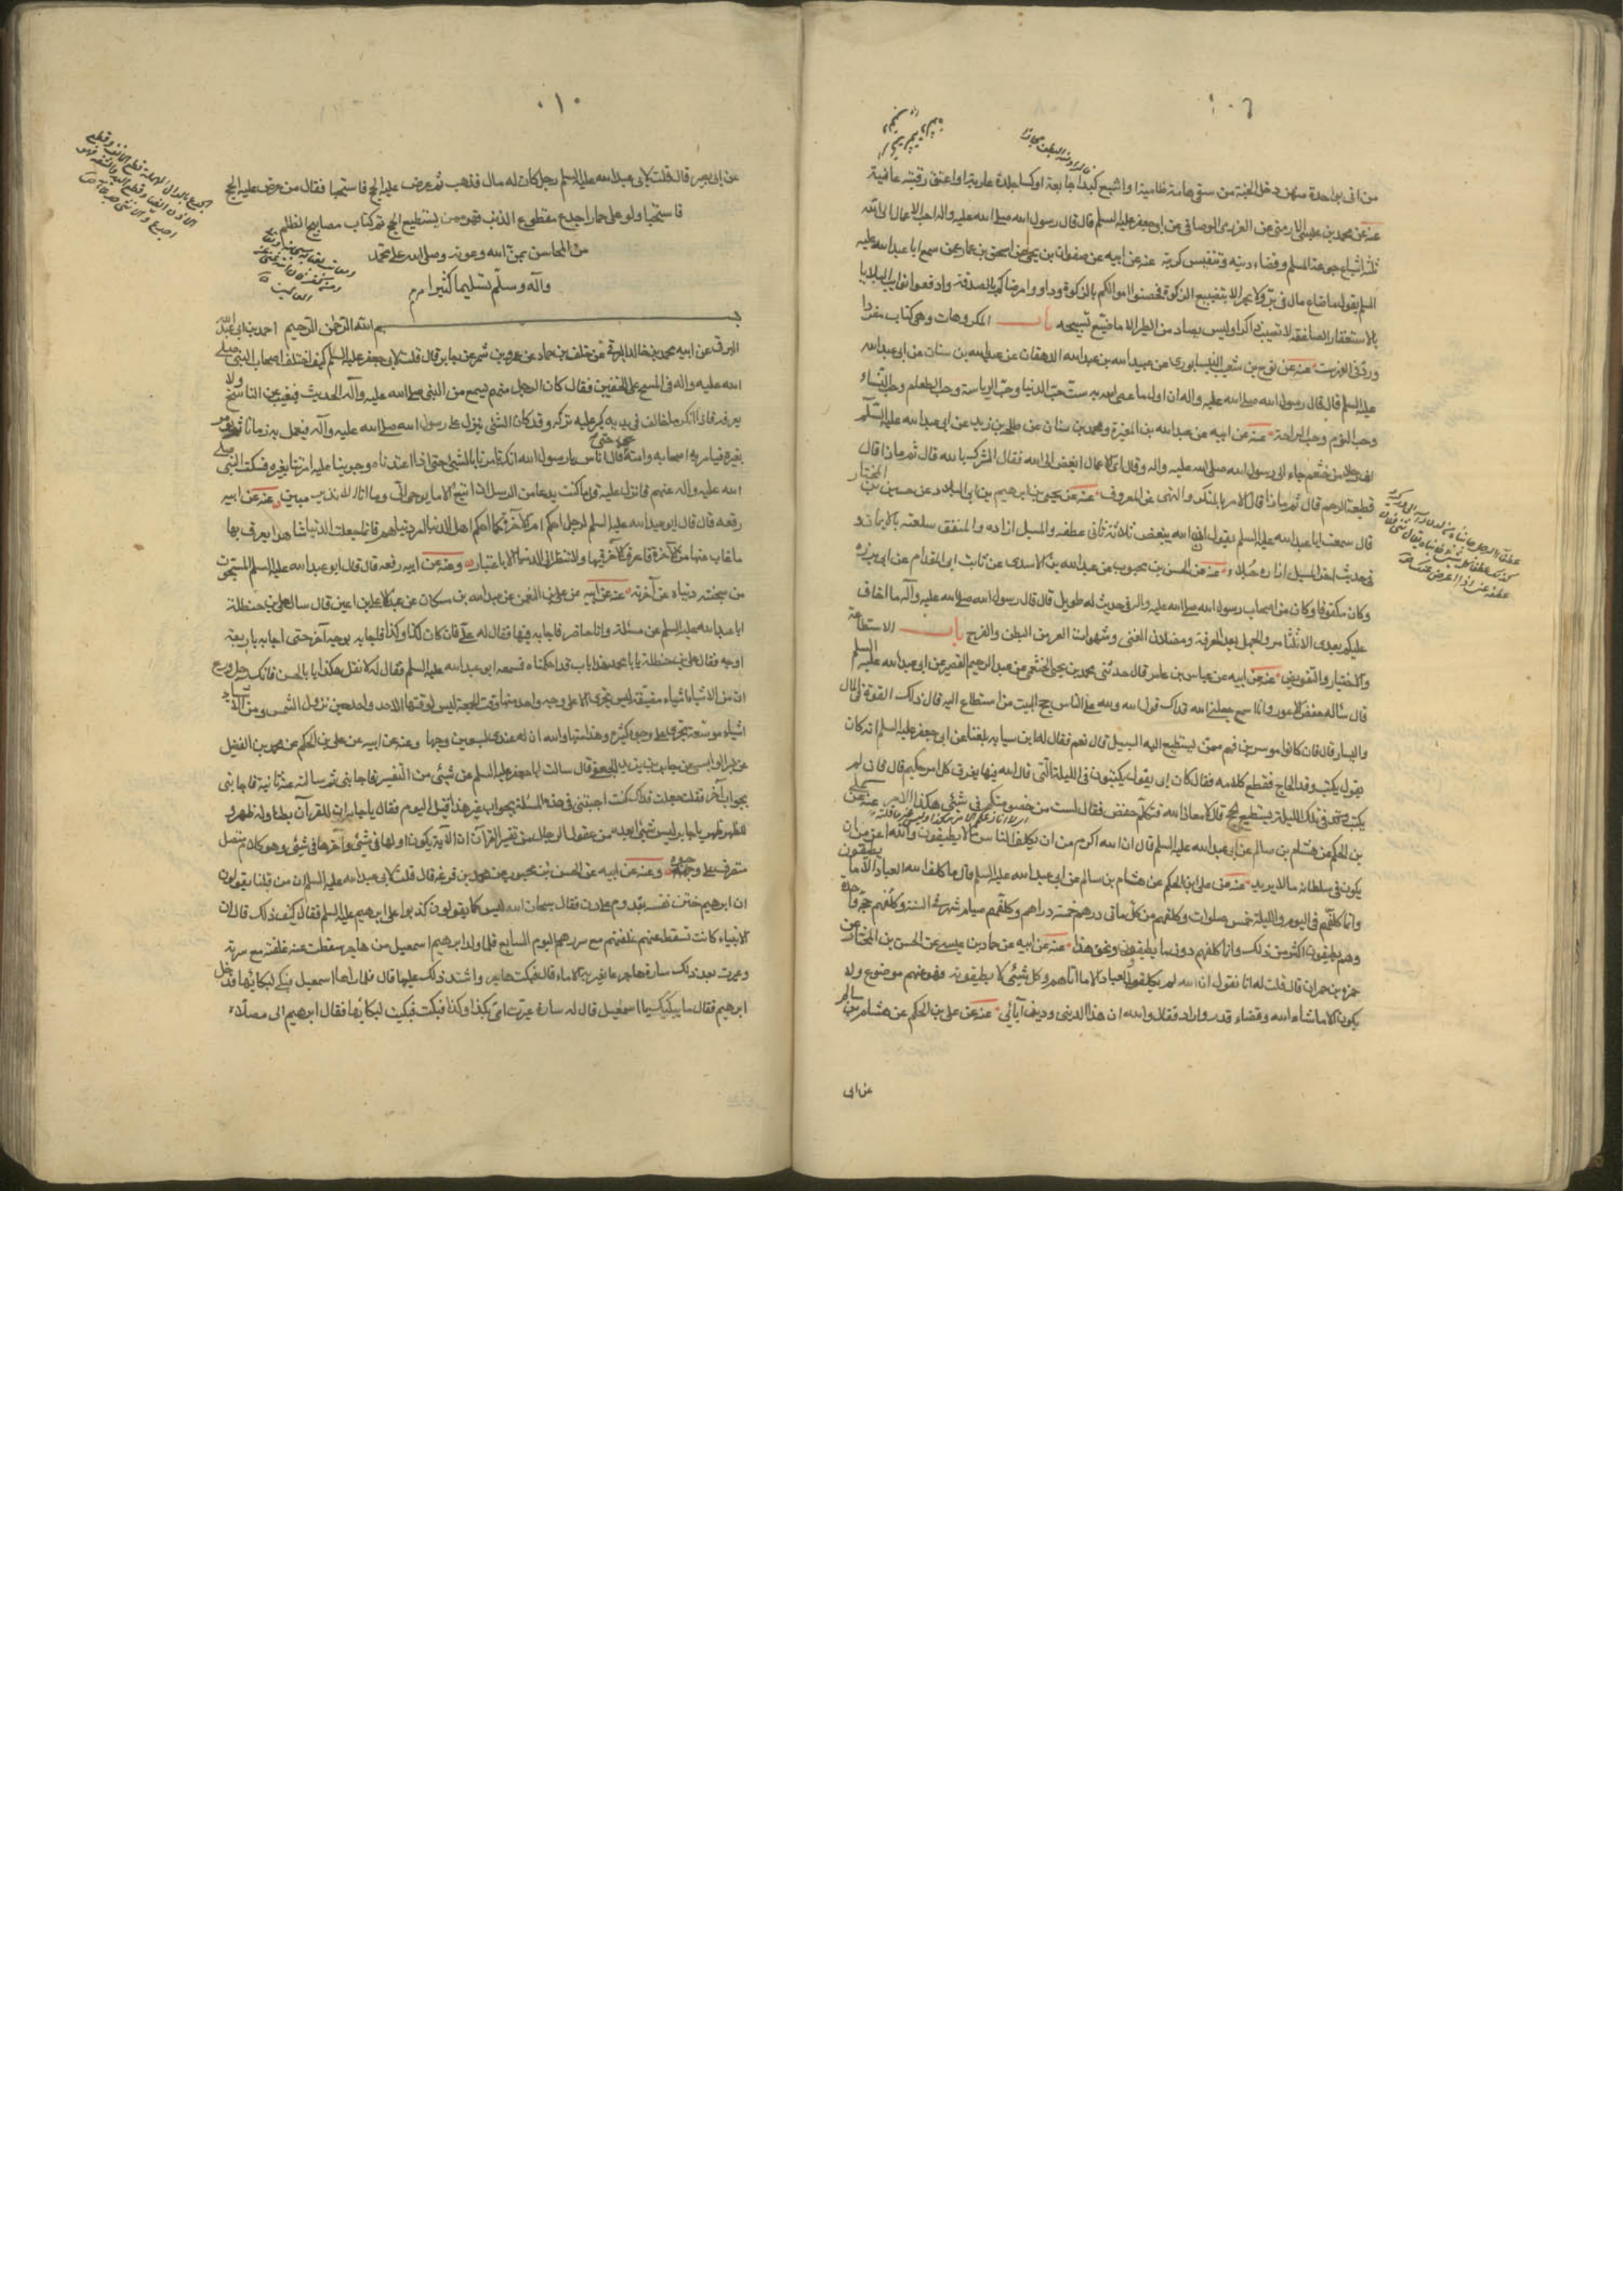 من اتى بواحدة منهن دخل الجنة من سقى هامة ظامية او اشبع كبدا جايعة او كسا جلدة عارية او اعتق رقبة عانية
عنه عن محمد بن عيسى الارمنى عن العرزمى الوصافى عن ابى جعفر عليه السلم قال قال رسول الله صلى الله عليه واله احب الاعمال الى الله
ثلثة اشباع جوعة المسلم وقضاء دينه وتنفيس كربته عنه عن ابيه عن صفوان بن يحيى عن اسحق بن عمار عمن سمع ابا عبد الله عليه
السلم يقول ما ضاع مال فى بر ولا بحر الا بتضييع الزكوة فحصنوا اموالكم بالزكوة وداووا مرضاكم بالصدقة وادفعوا نوايب البلايا
بالاستغفار الصاعقة لا تصيب ذاكرا وليس يصاد من الطير الا ما ضيع تسبيحه باب المكروهات وهى كتاب مفردا
ورد فى الفهرست عنه عن نوح بن شعيب النيسابورى عن عبيد الله بن عبد الله الدهقان عن عبد الله بن سنان عن ابى عبد الله
عليه السلم قال قال رسول الله صلى الله عليه واله ان اول ما عصى الله به ست حب الدنيا وحب الرياسة وحب الطعام وحب النساء
وحب النوم وحب الراحة عنه عن ابيه عن عبد الله بن المغيرة ومحمد بن سنان عن طلحة بن زيد عن ابى عبد الله عليه السلم
ان رجلا من خثعم جاء الى رسول الله صلى الله عليه واله وقال اى الاعمال ابغض الى الله فقال الشرك بالله قال ثم ماذا قال
قطيعة الرحم قال ثم ماذا قال الامر بالمنكر والنهى عن المعروف عنه عن يحيى بن ابرهيم بن ابى البلاد عن حسين بن المختار
قال سمعت ابا عبد الله عليه السلم يقول ان الله يبغض ثلاثة ثانى عطفه والمسبل ازاره والمنفق سلعته بالايمان و
فى حديث اخر المسبل ازاره خيلاء عنه عن الحسن بن محبوب عن عبد الله بن الاسدى عن ثابت ابى المقدام عن ابى برزه
وكان مكفوفا وكان من اصحاب رسول الله صلى الله عليه واله فى حديث له طويل قال قال رسول الله صلى الله عليه وآله مما اخاف
عليكم بعدى الثلثا من والجهل بعد المعرفة ومضلات الفتن وشهوات العى من البطن والفرج باب الاستطاعة
والاختيار والتفويض عنه عن ابيه عن عباس بن عامر قال حدثنى محمد بن يحيى الخثعمى عن عبد الرحيم القصير عن ابى عبد الله عليه السلم
قال سئاله حفص الاعور وانا اسمع جعلنى الله فداك قول الله ولله على الناس حج البيت من استطاع اليه قال ذلك القوة فى المال
واليسار قال فان كانوا موسرين فهم ممن يستطيع اليه السبيل قال نعم فقال له ابن سيابه بلغنا عن ابى جعفر عليه السلم انه كان
يقول يكتب وفد الحاج فقطع كلامه فقال كان ابى يقول يكتبون فى الليلة التى قال الله فيها يفرق كل امر حكيم قال فان لم
يكتب فى تلك الليلة يستطيع الحج قال لا معاذ الله فتكلم حفص فقال لست من خصومتكم فى شىء هكذا الامر عنه عن على
بن الحكم عن هشام بن سالم عن ابى عبد الله عليه السلم قال ان الله اكرم من ان يكلف الناس ما لا يطيقون والله اعز من ان
يكون فى سلطانه ما لا يريد عنه عن على بن الحكم عن هشام بن سالم عن ابى عبد الله عليه السلم قال ما كلف الله العباد الا ما يطيقون
وانما كلفهم فى اليوم والليلة خمس صلوات وكلفهم من كل مائتى درهم خمسة دراهم وكلفهم صيام شهر فى السنة وكلفهم حجة واحدة
وهم يطيقون اكثر من ذلك وانما كلفهم دون ما يطيقون ونحو هذا عنه عن ابيه عن حماد بن عيسى عن الحسن بن المختار عن
حمزة بن حمران قال قلت له انا نقول ان الله لم يكلف العباد الا ما اتاهم وكل شىء لا يطيقونه فهو عنهم موضوع ولا
يكون الا ما شاء الله وقضاء قدر واراد فقال والله ان هذا لدينى ودين آبائى عنه عن على بن الحكم عن هشام بن سالم
عن ابى
٠١٠
عن ابى بصير قال قلت لابى عبد الله عليه السلم رجل كان له مال فذهب ثم عرض عليه الحج فاستحيا فقال من عرض عليه الحج
فاستحيا ولو على حمار اجدع مقطوع الذنب فهو ممن يستطيع الحج تم كتاب مصابيح الظلم
من المحاسن بمن الله وعونه وصلى الله على محمد
وآله وسلم تسليما كثيرا
بسم الله الرحمن الرحيم احمد بن ابى عبد الله
البرقى عن ابيه محمد بن خالد البرقى عن خلف بن حماد عن عمرو بن شمر عن جابر قال قلت لابى جعفر عليه السلم كيف اختلف اصحاب النبى صلى
الله عليه واله فى المسح على الخفين فقال كان الرجل منهم يسمع من النبى صلى الله عليه وآله الحديث فيغيب عن الناسخ ولا
يعرفه فاذا انكر ما خالف فى يديه كبر عليه تركه وقد كان الشئ ينزل على رسول الله صلى الله عليه وآله فيعمل به زمانا ثم يؤمر
بغيره فيامر به اصحابه وامته حتى قال اناس يا رسول الله انك تامرنا بالشئ حتى اذا اعتدناه وجرينا عليه امرتنا بغيره فسكت النبى صلى
الله عليه واله عنهم فانزل عليه قل ما كنت بدعا من الرسل ان اتبع الا ما يوحى الى وما انا الا نذير مبين عنه عن ابيه
رفعه قال قال ابو عبد الله عليه السلم لرجل احكم امر الآخرة كما احكم اهل الدنيا امر دنياهم فانما جعلت الدنيا شاهدا يعرف بها
ما غاب عنها من الآخرة فاعرف الآخرة بها ولا تنظر الى الدنيا الا باعتبار وعنه عن ابيه رفعه قال قال ابو عبد الله عليه السلم
من سجنته دنياه عن آخرته عنه عن ابيه عن على بن النعمن عن عبد الله بن مسكان عن عبد الاعلى بن اعين قال سال على بن حنظلة
ابا عبد الله عليه السلم عن مسئلة وانا حاضر فاجابه فيها فقال له على فان كان كذا وكذا فاجابه بوجه آخر حتى اجابه باربعة
اوجه فقال على بن حنظلة يا با محمد هذا باب قد احكمناه فسمعه ابو عبد الله عليه السلم فقال له لا تقل هكذا يا با الحسن فانك رجل ورع
ان من الاشياء اشياء مضيقة ليس تجرى الا على وجه واحد منها وقت الجمعة ليس لوقتها الا حد واحد حين تزول الشمس ومن الاشياء
اشياء موسعة تجرى على وجوه كثيرة وهذا منها والله ان له عندى لسبعين وجها وعنه عن ابيه عن على بن الحكم عن محمد بن الفضل
عن شريس الوابشى عن جابر بن يزيد الجعفى قال سالت ابا جعفر عليه السلم عن شىء من التفسير فاجابنى ثم سالته عنه ثانية فاجابنى
بجواب آخر فقلت جعلت فداك كنت اجبتنى فى هذه المسئلة بجواب غير هذا قبل اليوم فقال يا جابر ان للقرآن بطنا وله ظهر و
للظهر ظهر يا جابر ليس شىء ابعد من عقول الرجال من تفسير القرآن ان الآية يكون اولها فى شىء وآخرها فى شىء وهو كلام متصل
متصرف على وجوه وعنه عن ابيه عن الحسن بن محبوب عن محمد بن قزعة قال قلت لابى عبد الله عليه السلم ان من قبلنا يقولون
ان ابرهيم ختن نفسه بقدوم على دن فقال سبحان الله ليس كما يقولون كذبوا على ابرهيم عليه السلم فقال كيف ذلك قال ان
الانبياء كانت تسقط عنهم غلفتهم مع سررهم اليوم السابع فلما ولد ابرهيم اسمعيل من هاجر سقطت عنه غلفته مع سرته
وعيرت بعد ذلك سارة هاجر بما يعير به الاماء قال فبكت هاجر واشتد ذلك عليها قال فلما راها اسمعيل تبكى بكى لبكائها فدخل
ابرهيم فقال ما يبكيك يا اسمعيل قال له سارة عيرت امى بكذا وكذا فبكت فبكيت لبكائها فقال ابرهيم الى مصلاه